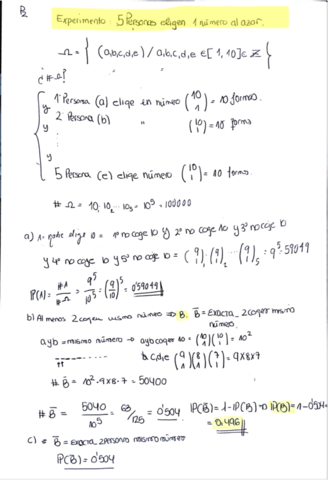 B
Experimento: 5 Personas eligen 1 número al azar.
Ω = { (a,b,c,d,e) / a,b,c,d,e ∈ [1,10] ∈ Z }
¿#Ω?
1ª Persona (a) elige un número (10 1) = 10 formas.
y 2ª Persona (b) " (10 1) = 10 forms
y
⋮
y
5 Persona (e) elige número (10 1) = 10 formas.
#Ω = 10₁·10₂ ... 10₅ = 10⁵ = 100000
a) A = nadie elige 10 = 1º no coge 10 y 2º no coge 10 y 3º no coge 10
y 4º no coge 10 y 5º no coge 10 = (9 1)₁·(9 1)₂ ... (9 1)₅ = 9⁵ = 59049
P(A) = #A/#Ω = 9⁵/10⁵ = (9/10)⁵ = 0'59049
b) Al menos 2 cogen mismo número ⇒ B. B̄ = Exacta. 2 coger mismo
número.
a y b = mismo número → a y b coger 10 = (10 1)(10 1) = 10²
b, c, d, e (9 1)(8 1)(7 1) = 9x8x7
# B̄ = 10²·9x8·7 = 50400
# B̄ = 5040/10⁵ = 63/125 = 0'504 P(B) = 1 - P(B̄) → P(B) = 1 - 0'504 =
= 0.496
c) B̄ = Exacta 2 personas mismo número
P(B̄) = 0'504